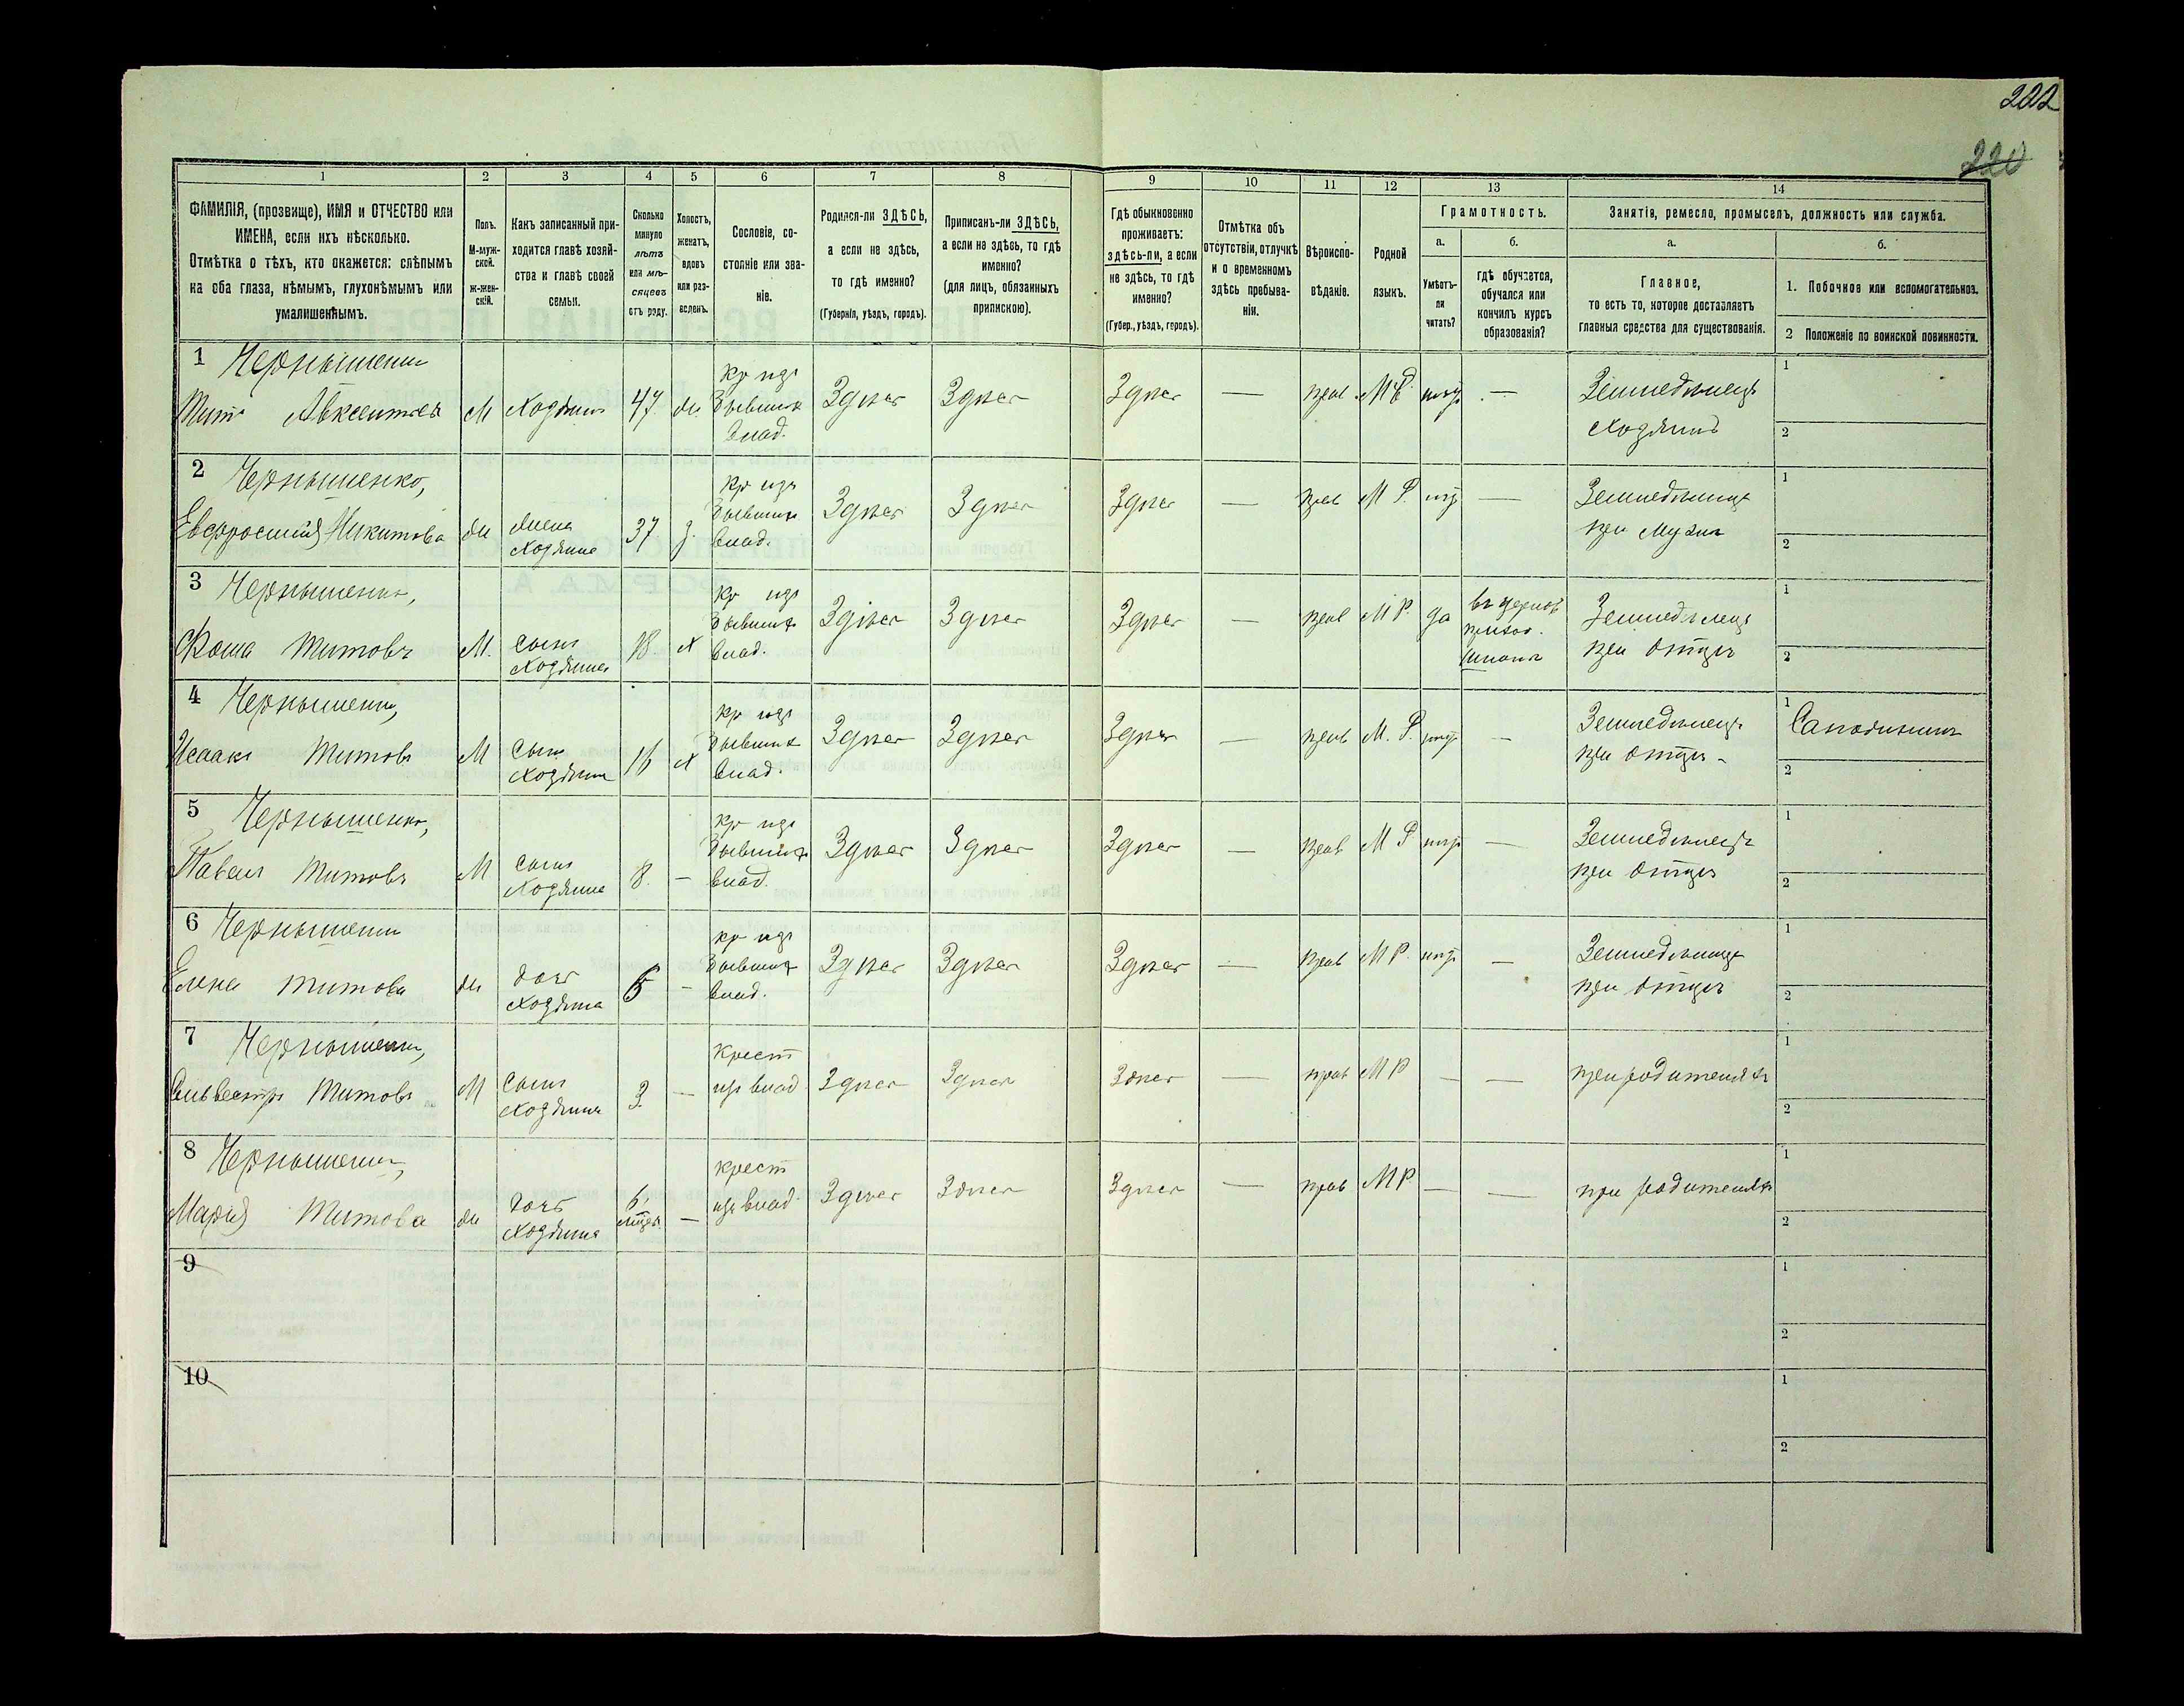 222
220
1 2 3 4 5 6 7 8 9 10 11 12 13 14
ФАМИЛІЯ, (прозвище), ИМЯ и ОТЧЕСТВО или
ИМЕНА, если ихъ нѣсколько.
Отмѣтка о тѣхъ, кто окажется: слѣпымъ
на оба глаза, нѣмымъ, глухонѣмымъ или
умалишеннымъ.
Полъ.
М-муж-
ской.
ж-жен-
скій.
Какъ записанный при-
ходится главѣ хозяй-
ства и главѣ своей
семьи.
Сколько
минуло
лѣтъ
или мѣ-
сяцевъ
отъ роду.
Холостъ,
женатъ,
вдовъ
или раз-
веденъ.
Сословіе, со-
стояніе или зва-
ніе.
Родился-ли ЗДѢСЬ,
а если не здѣсь,
то гдѣ именно?
(Губернія, уѣздъ, городъ).
Приписанъ-ли ЗДѢСЬ,
а если не здѣсь, то гдѣ
именно?
(для лицъ, обязанныхъ
припискою).
Гдѣ обыкновенно
проживаетъ:
здѣсь-ли, а если
не здѣсь, то гдѣ
именно?
(Губер., уѣздъ, городъ).
Отмѣтка объ
отсутствіи, отлучкѣ
и о временномъ
здѣсь пребыва-
ніи.
Вѣроиспо-
вѣданіе.
Родной
языкъ.
Грамотность.
а.
Умѣетъ-
ли
читать?
б.
гдѣ обучается,
обучался или
кончилъ курсъ
образованія?
Занятія, ремесло, промыселъ, должность или служба.
а.
Главное,
то есть то, которое доставляетъ
главныя средства для существованія.
б.
1. Побочное или вспомогательное.
2 Положеніе по воинской повинности.
1 Чернышенко
Титъ Авксентьевъ М Хозяинъ 47 ж. кр изъ бывших влад. Здѣсь Здѣсь Здѣсь — прав. М Р. нѣтъ — Земледѣлецъ Хозяинъ 1 2
2 Чернышенко,
Евфросинія Никитова ж Жена Хозяина 37 з. кр изъ бывших влад. Здѣсь Здѣсь Здѣсь — прав М Р. нѣтъ — Земледѣлица при Мужѣ 1 2
3 Чернышенко,
Фома Титовъ М. Сынъ Хозяина 18 х кр изъ бывших влад. Здѣсь Здѣсь Здѣсь — прав М Р. да въ церков приход. школѣ Земледѣлецъ при Отцѣ 1 2
4 Чернышенко,
Исаакъ Титовъ М Сынъ Хозяина 16 х кр изъ бывших влад. Здѣсь Здѣсь Здѣсь — прав М. Р. нѣтъ — Земледѣлецъ при Отцѣ 1 Сапожникъ 2
5 Чернышенко,
Павелъ Титовъ М Сынъ Хозяина 8. — кр изъ бывших влад. Здѣсь Здѣсь Здѣсь — прав М Р нѣтъ — Земледѣлецъ при Отцѣ 1 2
6 Чернышенко
Елена Титова ж дочь Хозяина — кр изъ бывших влад. Здѣсь Здѣсь Здѣсь — прав М Р. нѣтъ — Земледѣлица при Отцѣ 1 2
7 Чернышенко,
Сильвестръ Титовъ М Сынъ Хозяина 3 — крест изъ влад Здѣсь Здѣсь Здѣсь — прав М Р — — при родителяхъ 1 2
8 Чернышенко,
Марія Титова ж дочь Хозяина 6 — крест изъ влад. Здѣсь Здѣсь Здѣсь — прав М Р — — при родителяхъ 1 2
9 1 2
10 1 2